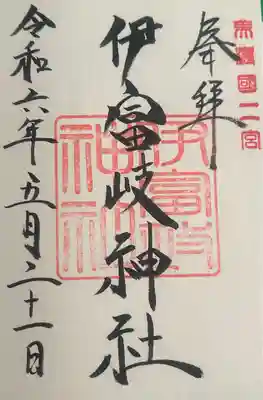 美濃國二宮
奉拝
伊富岐神社
伊富岐神社
令和六年五月二十一日